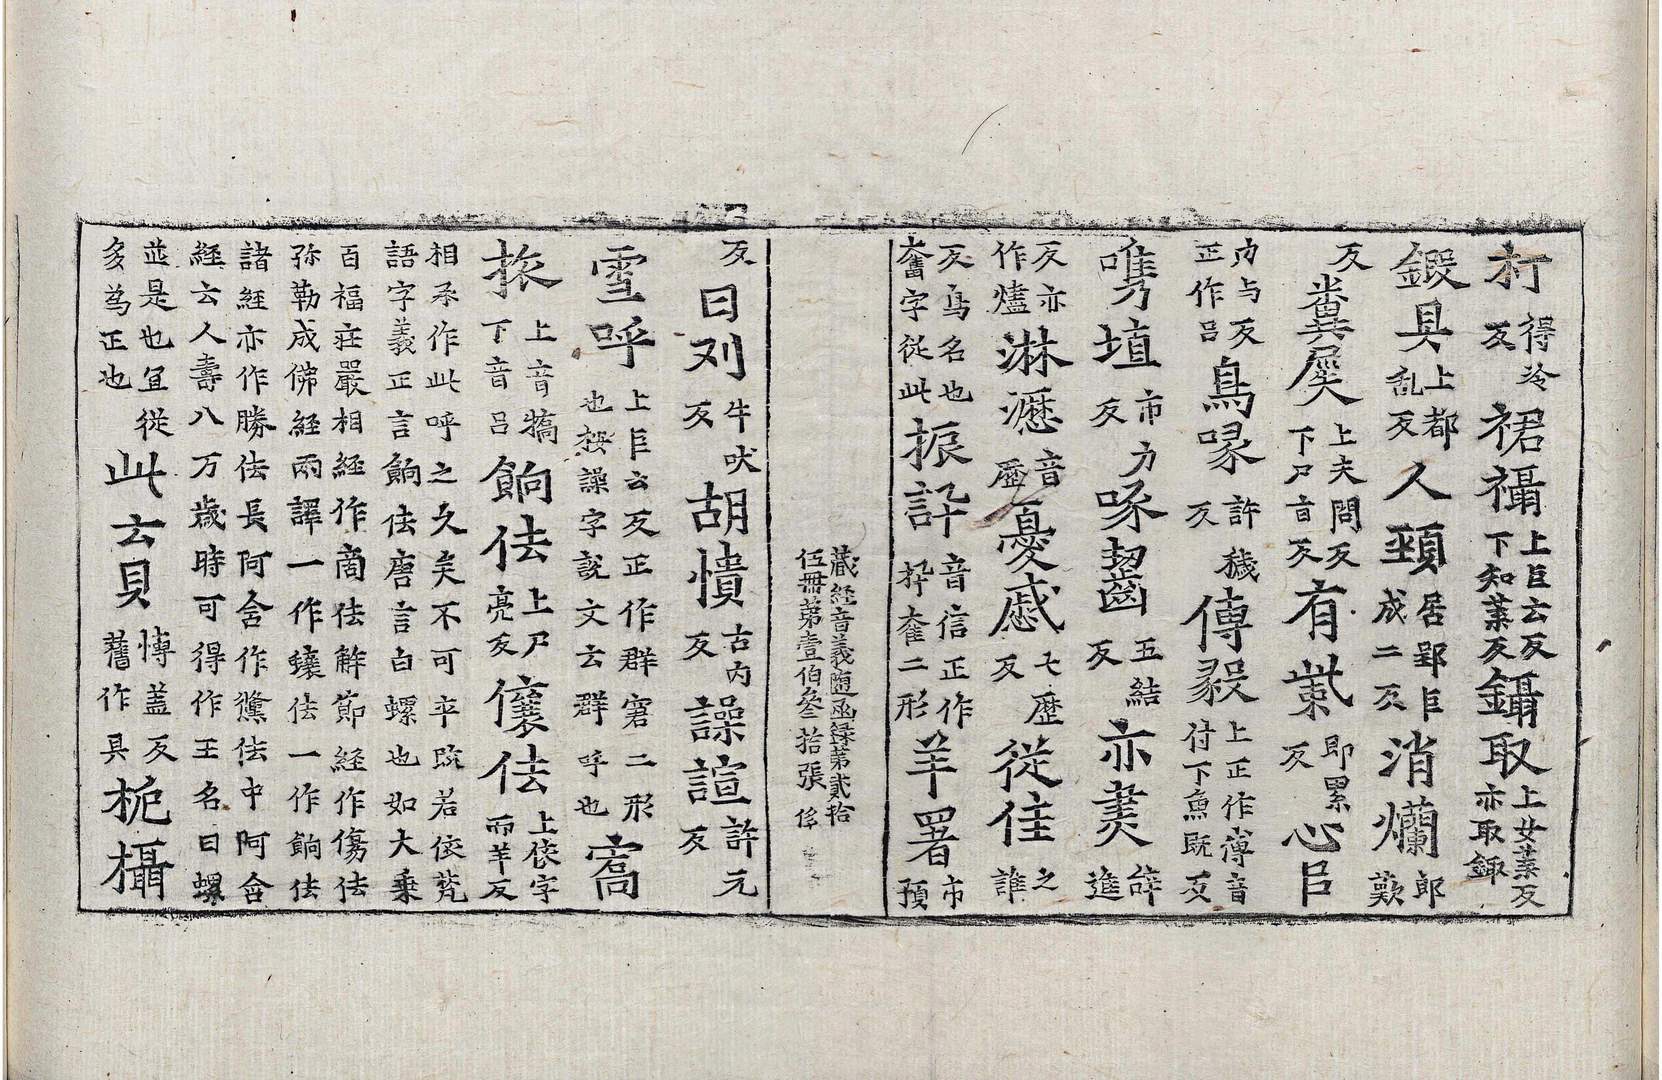 打得冷反裙襵上巨云反下知葉反鑷取上女葉反亦取鎺
鍛具上都乱反人頸居郢巨成二反消爛郎歎
反糞屎上夫問反下尸旨反有觜即累反心吕
力与反正作吕鳥喙許穢反傅毅上正作薄音付下魚既反
㒞埴市力反啄齧五結反亦㶳辝進
反亦作燼淋瀝音歴憂慼七歷反從隹之誰
反鳥名也奞字從此振訙音信正作㧲奞二形羊署市預
藏經音義随函録第貳拾伍冊第壹伯叄拾張 侈
反曰刈牛吠反胡憒古内反譟諠許元反
雪呼上巨云反正作群宭二形也按譟字說文云群呼也㝯
挔上音犒下音吕餉佉上尸亮反儴佉上依字而羊反
相承作此呼之久矣不可卒臨若依梵語字義正言餉佉唐言白螺也如大乗
百福莊嚴相経作商佉解節経作傷佉弥勒成佛経兩譯一作蠰佉一作餉佉
諸経亦作勝佉長阿含作儴佉中阿含経云人壽八万歳時可得作王名曰螺
並是也宜従多為正也此云貝慱蓋反舊作具枙欇